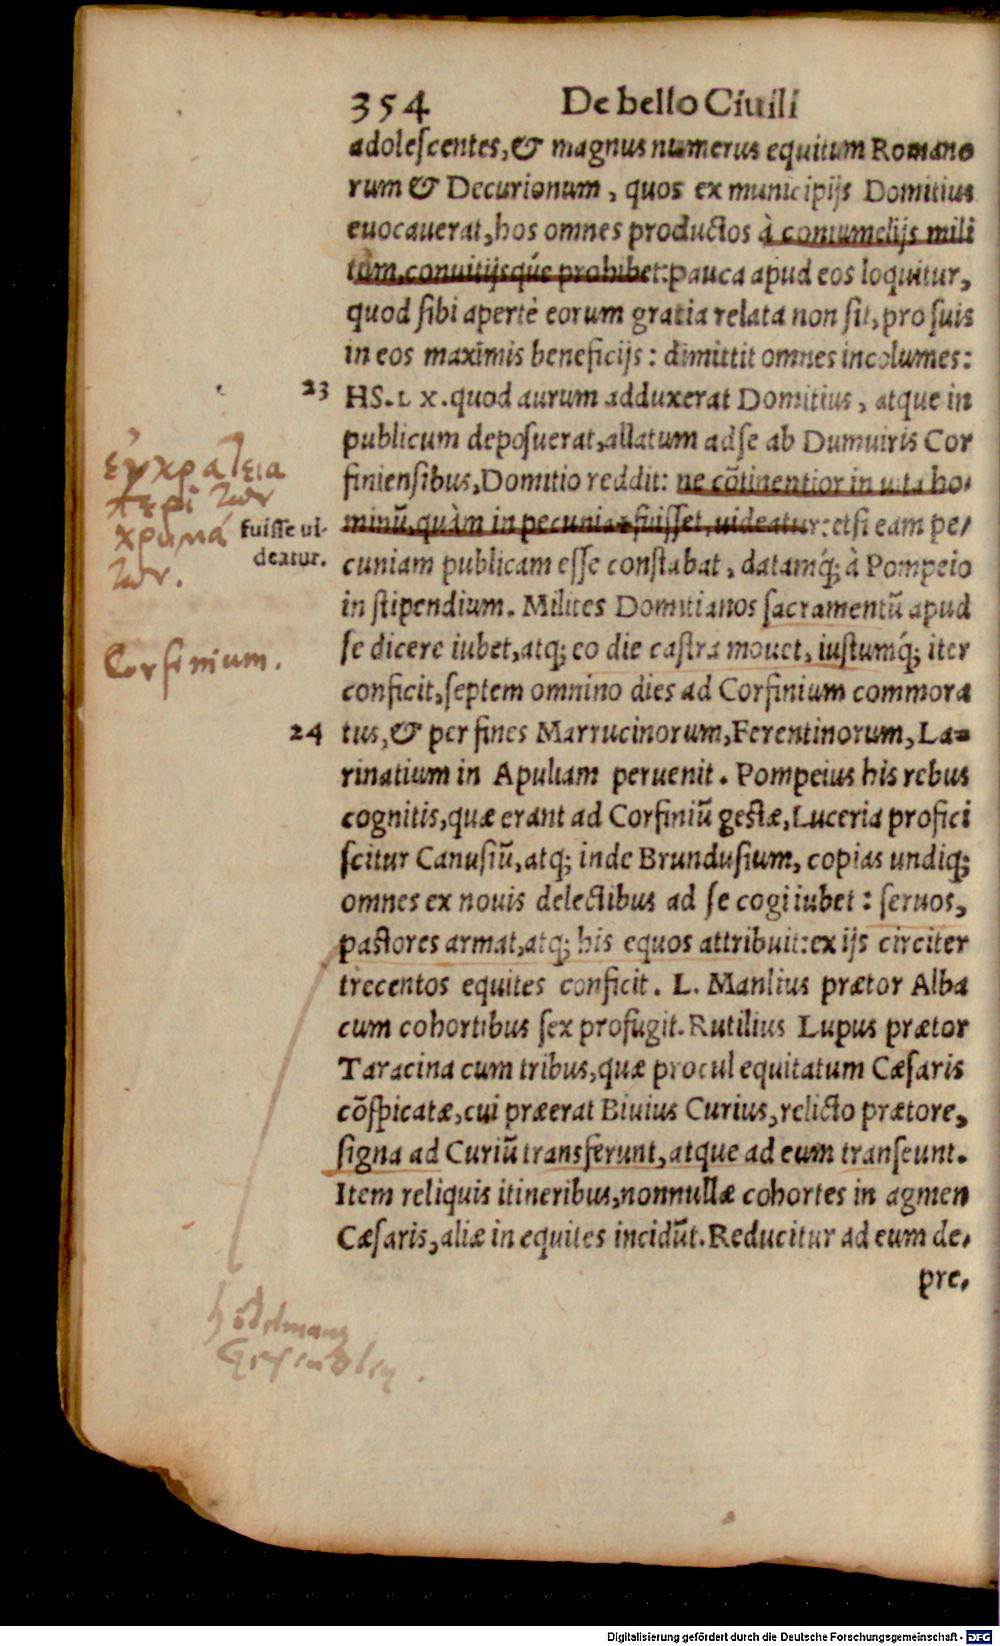 354 De bello Ciuili
adolescentes, & magnus numerus equitum Romano
rum & Decurionum, quos ex municipijs Domitius
euocauerat, hos omnes productos à contumelijs mili
tum, conuitijsq́ue prohibet: pauca apud eos loquitur,
quod sibi apertè eorum gratia relata non sit, pro suis
in eos maximis beneficijs: dimittit omnes incolumes:
23 HS. L X. quod aurum adduxerat Domitius, atque in
publicum deposuerat, allatum ad se ab Dumuiris Cor
finiensibus, Domitio reddit: ne cõtinentior in uita ho-
minũ, quàm in pecunia fuisset, uideatur: etsi eam pe-
cuniam publicam esse constabat, datamq́; à Pompeio
in stipendium. Milites Domitianos sacramentũ apud
se dicere iubet, atq; eo die castra mouet, iustumq́; iter
conficit, septem omnino dies ad Corfinium commora
24 tus, & per fines Marrucinorum, Ferentinorum, La-
rinatium in Apuliam peruenit. Pompeius his rebus
cognitis, quæ erant ad Corfiniũ gestæ, Luceria profici
scitur Canusiũ, atq; inde Brundusium, copias undiq;
omnes ex nouis delectibus ad se cogi iubet: seruos,
pastores armat, atq; his equos attribuit: ex ijs circiter
trecentos equites conficit. L. Manlius prætor Alba
cum cohortibus sex profugit. Rutilius Lupus prætor
Taracina cum tribus, quæ procul equitatum Cæsaris
cõspicatæ, cui præerat Biuius Curius, relicto prætore,
signa ad Curiũ transferunt, atque ad eum transeunt.
Item reliquis itineribus, nonnullæ cohortes in agmen
Cæsaris, aliæ in equites incidũt. Reducitur ad eum de-
pre-
ἐγκράτεια
περὶ τῶν
χρημά
των.
fuisse ui-
deatur.
Corfinium.